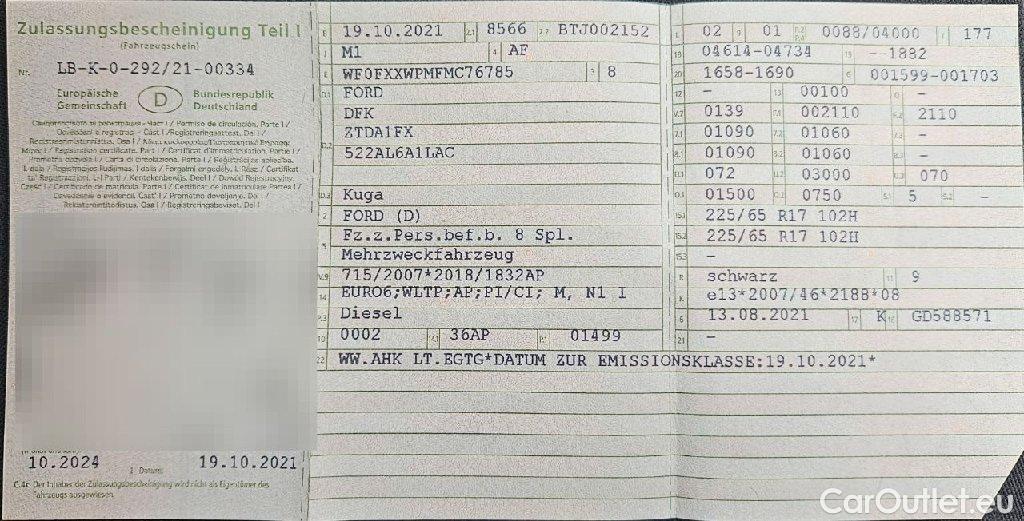 Zulassungsbescheinigung Teil I
(Fahrzeugschein)
Nr. LB-K-0-292/21-00334
Europäische Gemeinschaft D Bundesrepublik Deutschland
10.2024 19.10.2021
I Datum
C.4c Der Inhaber der Zulassungsbescheinigung wird nicht als Eigentümer des
Fahrzeugs ausgewiesen.
B 19.10.2021 2.1 8566 2.2 BTJ002152
J M1 4 AF
E WF0FXXWPMFMC76785 3 8
D.1 FORD
DFK
D.2 ZTDA1FX
522AL6A1LAC
D.3 Kuga
2 FORD (D)
5 Fz.z.Pers.bef.b. 8 Spl.
Mehrzweckfahrzeug
V.9 715/2007*2018/1832AP
14 EURO6;WLTP;AP;PI/CI; M, N1 I
P.3 Diesel
10 0002 14.1 36AP P.1 01499
22 WW.AHK LT.EGTG*DATUM ZUR EMISSIONSKLASSE:19.10.2021*
L 02 9 01 P.2 P.4 0088/04000 T 177
18 04614-04734 19 --1882
20 1658-1690 G 001599-001703
12 - 13 00100 Q -
V.7 0139 F.1 002110 F.2 2110
7.1 01090 7.2 01060 7.3 -
8.1 01090 8.2 01060 8.3 -
U.1 072 U.2 03000 U.3 070
O.1 01500 O.2 0750 S.1 5 S.2 -
15.1 225/65 R17 102H
15.2 225/65 R17 102H
15.3 -
R schwarz 11 9
K e13*2007/46*2188*08
6 13.08.2021 17 K 16 GD588571
21 -
CarOutlet.eu